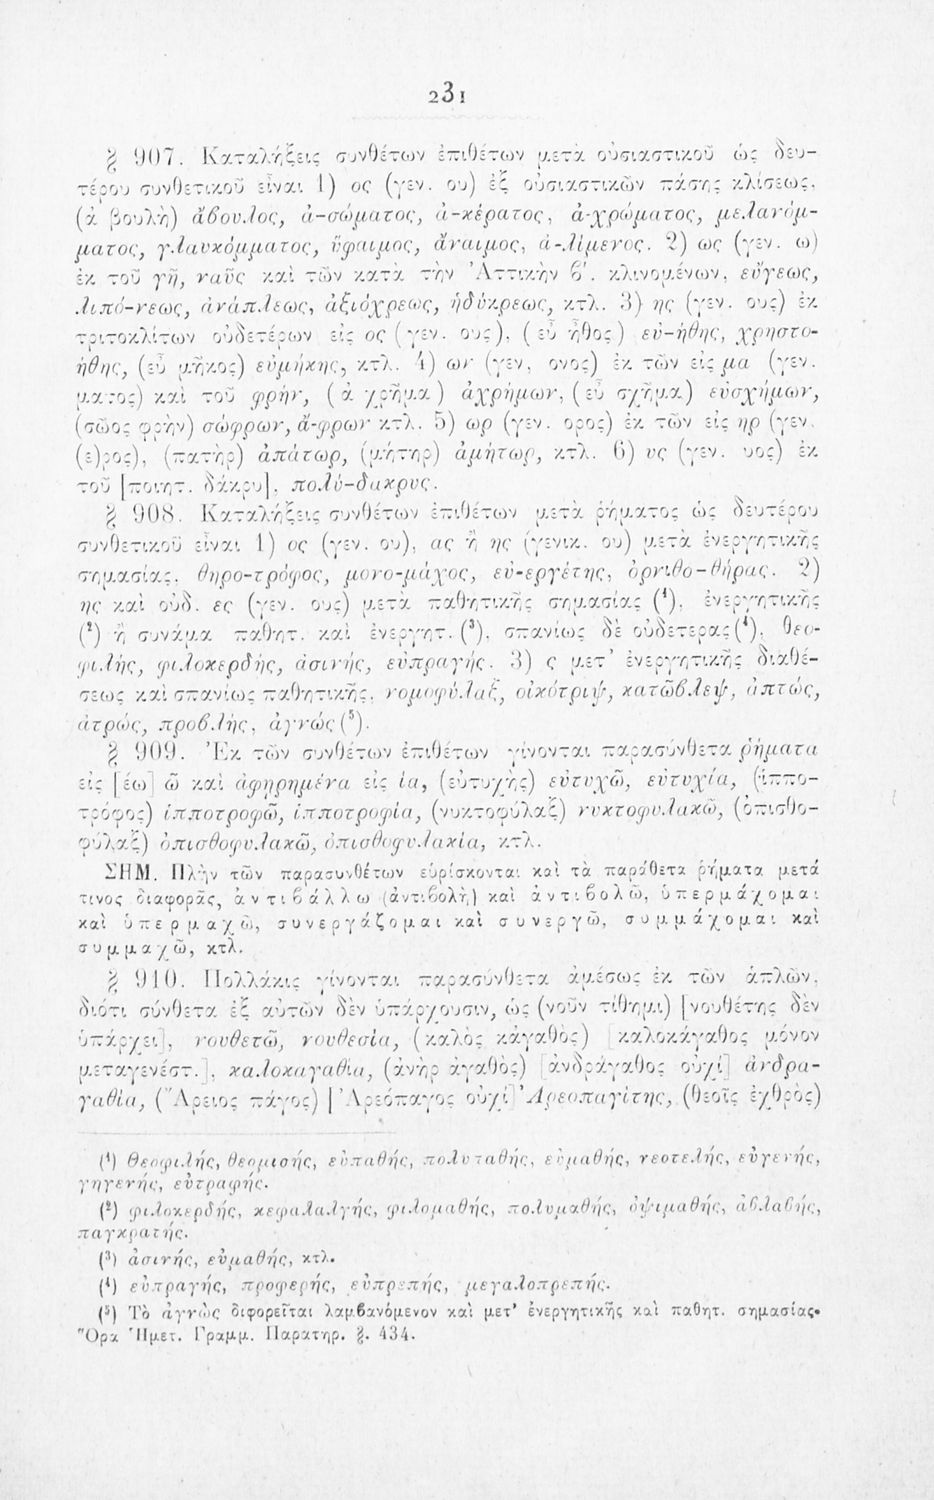 231
§ 907. Καταλήξεις συνθέτων ἐπιθέτων μετὰ οὐσιαστικοῦ ὡς δευ-
τέρου συνθετικοῦ εἶναι 1) ος (γεν. ου) ἐξ οὐσιαστικῶν πάσης κλίσεως,
(ἀ βουλὴ) ἄβουλος, ἀ-σώματος, ἀ-κέρατος, ἀ-χρώματος, μελανόμ-
ματος, γλαυκόμματος, ὕφαιμος, ἄναιμος, ἀ-λίμενος. 2) ως (γεν. ω)
ἐκ τοῦ γῆ, ναῦς καὶ τῶν κατὰ τὴν Ἀττικὴν β'. κλινομένων, εὔγεως,
λιπό-νεως, ἀνάπλεως, ἀξιόχρεως, ἡδύκρεως, κτλ. 3) ης (γεν. ους) ἐκ
τριτοκλίτων οὐδετέρων εἰς ος (γεν. ους), (εὖ ἦθος) εὐ-ήθης, χρηστο-
ήθης, (εὖ μῆκος) εὐμήκης, κτλ. 4) ων (γεν, ονος) ἐκ τῶν εἰς μα (γεν.
ματος) καὶ τοῦ φρήν, (ἀ χρῆμα) ἀχρήμων, (εὖ σχῆμα) εὐσχήμων,
(σῶος φρὴν) σώφρων, ἄ-φρων κτλ. 5) ωρ (γεν. ορος) ἐκ τῶν εἰς ηρ (γεν.
(ε)ρος), (πατὴρ) ἀπάτωρ, (μήτηρ) ἀμήτωρ, κτλ. 6) υς (γεν. υος) ἐκ
τοῦ [ποιητ. δάκρυ], πολύ-δακρυς.
§ 908. Καταλήξεις συνθέτων ἐπιθέτων μετὰ ῥήματος ὡς δευτέρου
συνθετικοῦ εἶναι 1) ος (γεν. ου), ας ἢ ης (γενικ. ου) μετὰ ἐνεργητικῆς
σημασίας, θηρο-τρόφος, μονο-μάχος, εὐ-εργέτης, ὀρνιθο-θήρας. 2)
ης καὶ οὐδ. ες (γεν. ους) μετὰ παθητικῆς σημασίας (¹), ἐνεργητικῆς
(²) ἢ συνάμα παθητ. καὶ ἐνεργητ. (³), σπανίως δὲ οὐδετερας(⁴), θεο-
φιλής, φιλοκερδής, ἀσινής, εὐπραγής. 3) ς μετ' ἐνεργητικῆς διαθέ-
σεως καὶ σπανίως παθητικῆς, νομοφύλαξ, οἰκότριψ, κατῶβλεψ, ἀπτώς,
ἀτρώς, προβλής, ἀγνώς(⁵).
§ 909. Ἐκ τῶν συνθέτων ἐπιθέτων γίνονται παρασύνθετα ῥήματα
εἰς [έω] ῶ καὶ ἀφηρημένα εἰς ία, (εὐτυχὴς) εὐτυχῶ, εὐτυχία, (ἱππο-
τρόφος) ἱπποτροφῶ, ἱπποτροφία, (νυκτοφύλαξ) νυκτοφυλακῶ, (ὀπισθο-
φύλαξ) ὀπισθοφυλακῶ, ὀπισθοφυλακία, κτλ.
ΣΗΜ. Πλὴν τῶν παρασυνθέτων εὑρίσκονται καὶ τὰ παράθετα ῥήματα μετά
τινος διαφορᾶς, ἀντιβάλλω (ἀντιβολὴ) καὶ ἀντιβολῶ, ὑπερμάχομαι
καὶ ὑπερμαχῶ, συνεργάζομαι καὶ συνεργῶ, συμμάχομαι καὶ
συμμαχῶ, κτλ.
§ 910. Πολλάκις γίνονται παρασύνθετα ἀμέσως ἐκ τῶν ἁπλῶν,
διότι σύνθετα ἐξ αὐτῶν δὲν ὑπάρχουσιν, ὡς (νοῦν τίθημι) [νουθέτης δὲν
ὑπάρχει], νουθετῶ, νουθεσία, (καλὸς κἀγαθὸς) [καλοκάγαθος μόνον
μεταγενέστ.], καλοκαγαθία, (ἀνὴρ ἀγαθὸς) [ἀνδράγαθος οὐχὶ] ἀνδρα-
γαθία, (Ἄρειος πάγος) [Ἀρεόπαγος οὐχὶ] Ἀρεοπαγίτης, (θεοῖς ἐχθρὸς)
(¹) Θεοφιλής, θεομισής, εὐπαθής, πολυπαθής, εὐμαθής, νεοτελής, εὐγενής,
γηγενής, εὐτραφής.
(²) φιλοκερδής, κεφαλαλγής, φιλομαθής, πολυμαθής, ὀψιμαθής, ἀβλαβής,
παγκρατής.
(³) ἀσινής, εὐμαθής, κτλ.
(⁴) εὐπραγής, προφερής, εὐπρεπής, μεγαλοπρεπής.
(⁵) Τὸ ἀγνὼς διφορεῖται λαμβανόμενον καὶ μετ' ἐνεργητικῆς καὶ παθητ. σημασίας.
Ὅρα Ἡμετ. Γραμμ. Παρατηρ. §. 434.